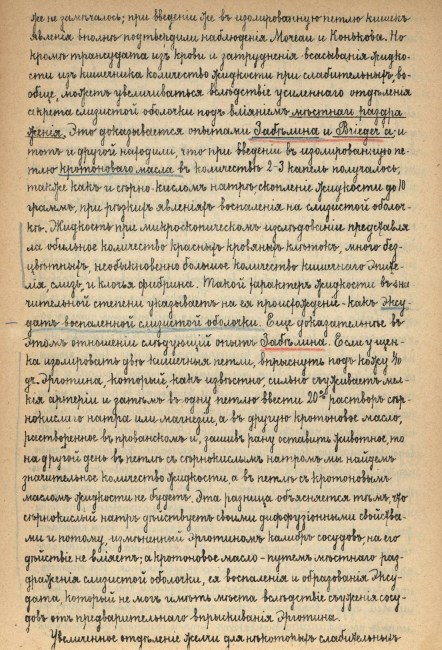 же не замѣчалось; при введеніи же въ изолированную петлю кишекъ
явленія вполнѣ подтвердили наблюденія Мочеаи и Конькова. Но
кромѣ транссудата изъ крови и затрудненія всасыванія жидко-
сти изъ кишечника количество жидкости при слабительныхъ, во-
обще, можетъ увеличиваться вслѣдствіе усиленнаго отдѣленія
секрета слизистой оболочки подъ вліяніемъ мѣстнаго раздра-
женія. Это доказывается опытами Забѣлина и Brieger'а; и
тотъ и другой находили, что при введеніи въ изолированную пе-
тлю кротоноваго масла въ количествѣ 2-3 капель получалось,
также какъ и сѣрно-кисломъ натрѣ скопленіе жидкости до 10
граммъ, при рѣзкихъ явленіяхъ воспаленія на слизистой оболоч-
кѣ. Жидкость при микроскопическомъ изслѣдованіи представля-
ла обильное количество красныхъ кровяныхъ клѣтокъ, много без-
цвѣтныхъ, необыкновенно большое количество кишечнаго эпите-
лія, слизь, и клочья фибрина. Такой характеръ жидкости въ зна-
чительной степени указываетъ на ея происхожденіе - какъ эксу-
датъ воспаленной слизистой оболочки. Еще доказательнѣе въ
этомъ отношеніи слѣдующій опытъ Забѣлина. Если у щен-
ка изолировать двѣ кишечныя петли, впрыснуть подъ кожу 1/10
гр. Эрготина, который, какъ извѣстно, сильно съуживаетъ мел-
кія артеріи и затѣмъ въ одну петлю ввести 20% растворъ сѣр-
нокислаго натра или магнезіи, а въ другую кротоновое масло,
растворенное въ прованскомъ и, зашивъ рану оставить животное, то
на другой день въ петлѣ съ сѣрнокислымъ натромъ мы найдемъ
значительное количество жидкости, а въ петлѣ съ кротоновымъ
масломъ жидкости не будетъ. Эта разница объясняется тѣмъ, что
сѣрнокислый натръ дѣйствуетъ своими диффузіонными свойства-
ми и потому, измѣненный Эрготиномъ калибръ сосудовъ, на его
дѣйствіе не вліяетъ; а кротоновое масло - путемъ мѣстнаго раз-
драженія слизистой оболочки, ея воспаленія и образованія Эксу-
дата, который не могъ имѣть мѣста вслѣдствіе съуженія сосу-
довъ отъ предварительнаго впрыскиванія Эрготина.
Увеличенное отдѣленіе желчи для нѣкоторыхъ слабительныхъ